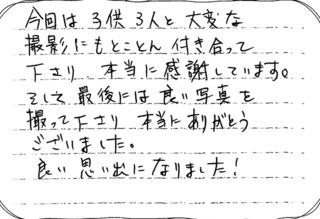 今回は子供3人と大変な
撮影にもとことん付き合って
下さり 本当に感謝しています。
そして最後には良い写真を
撮って下さり 本当にありがとう
ございました。
良い思い出になりました!